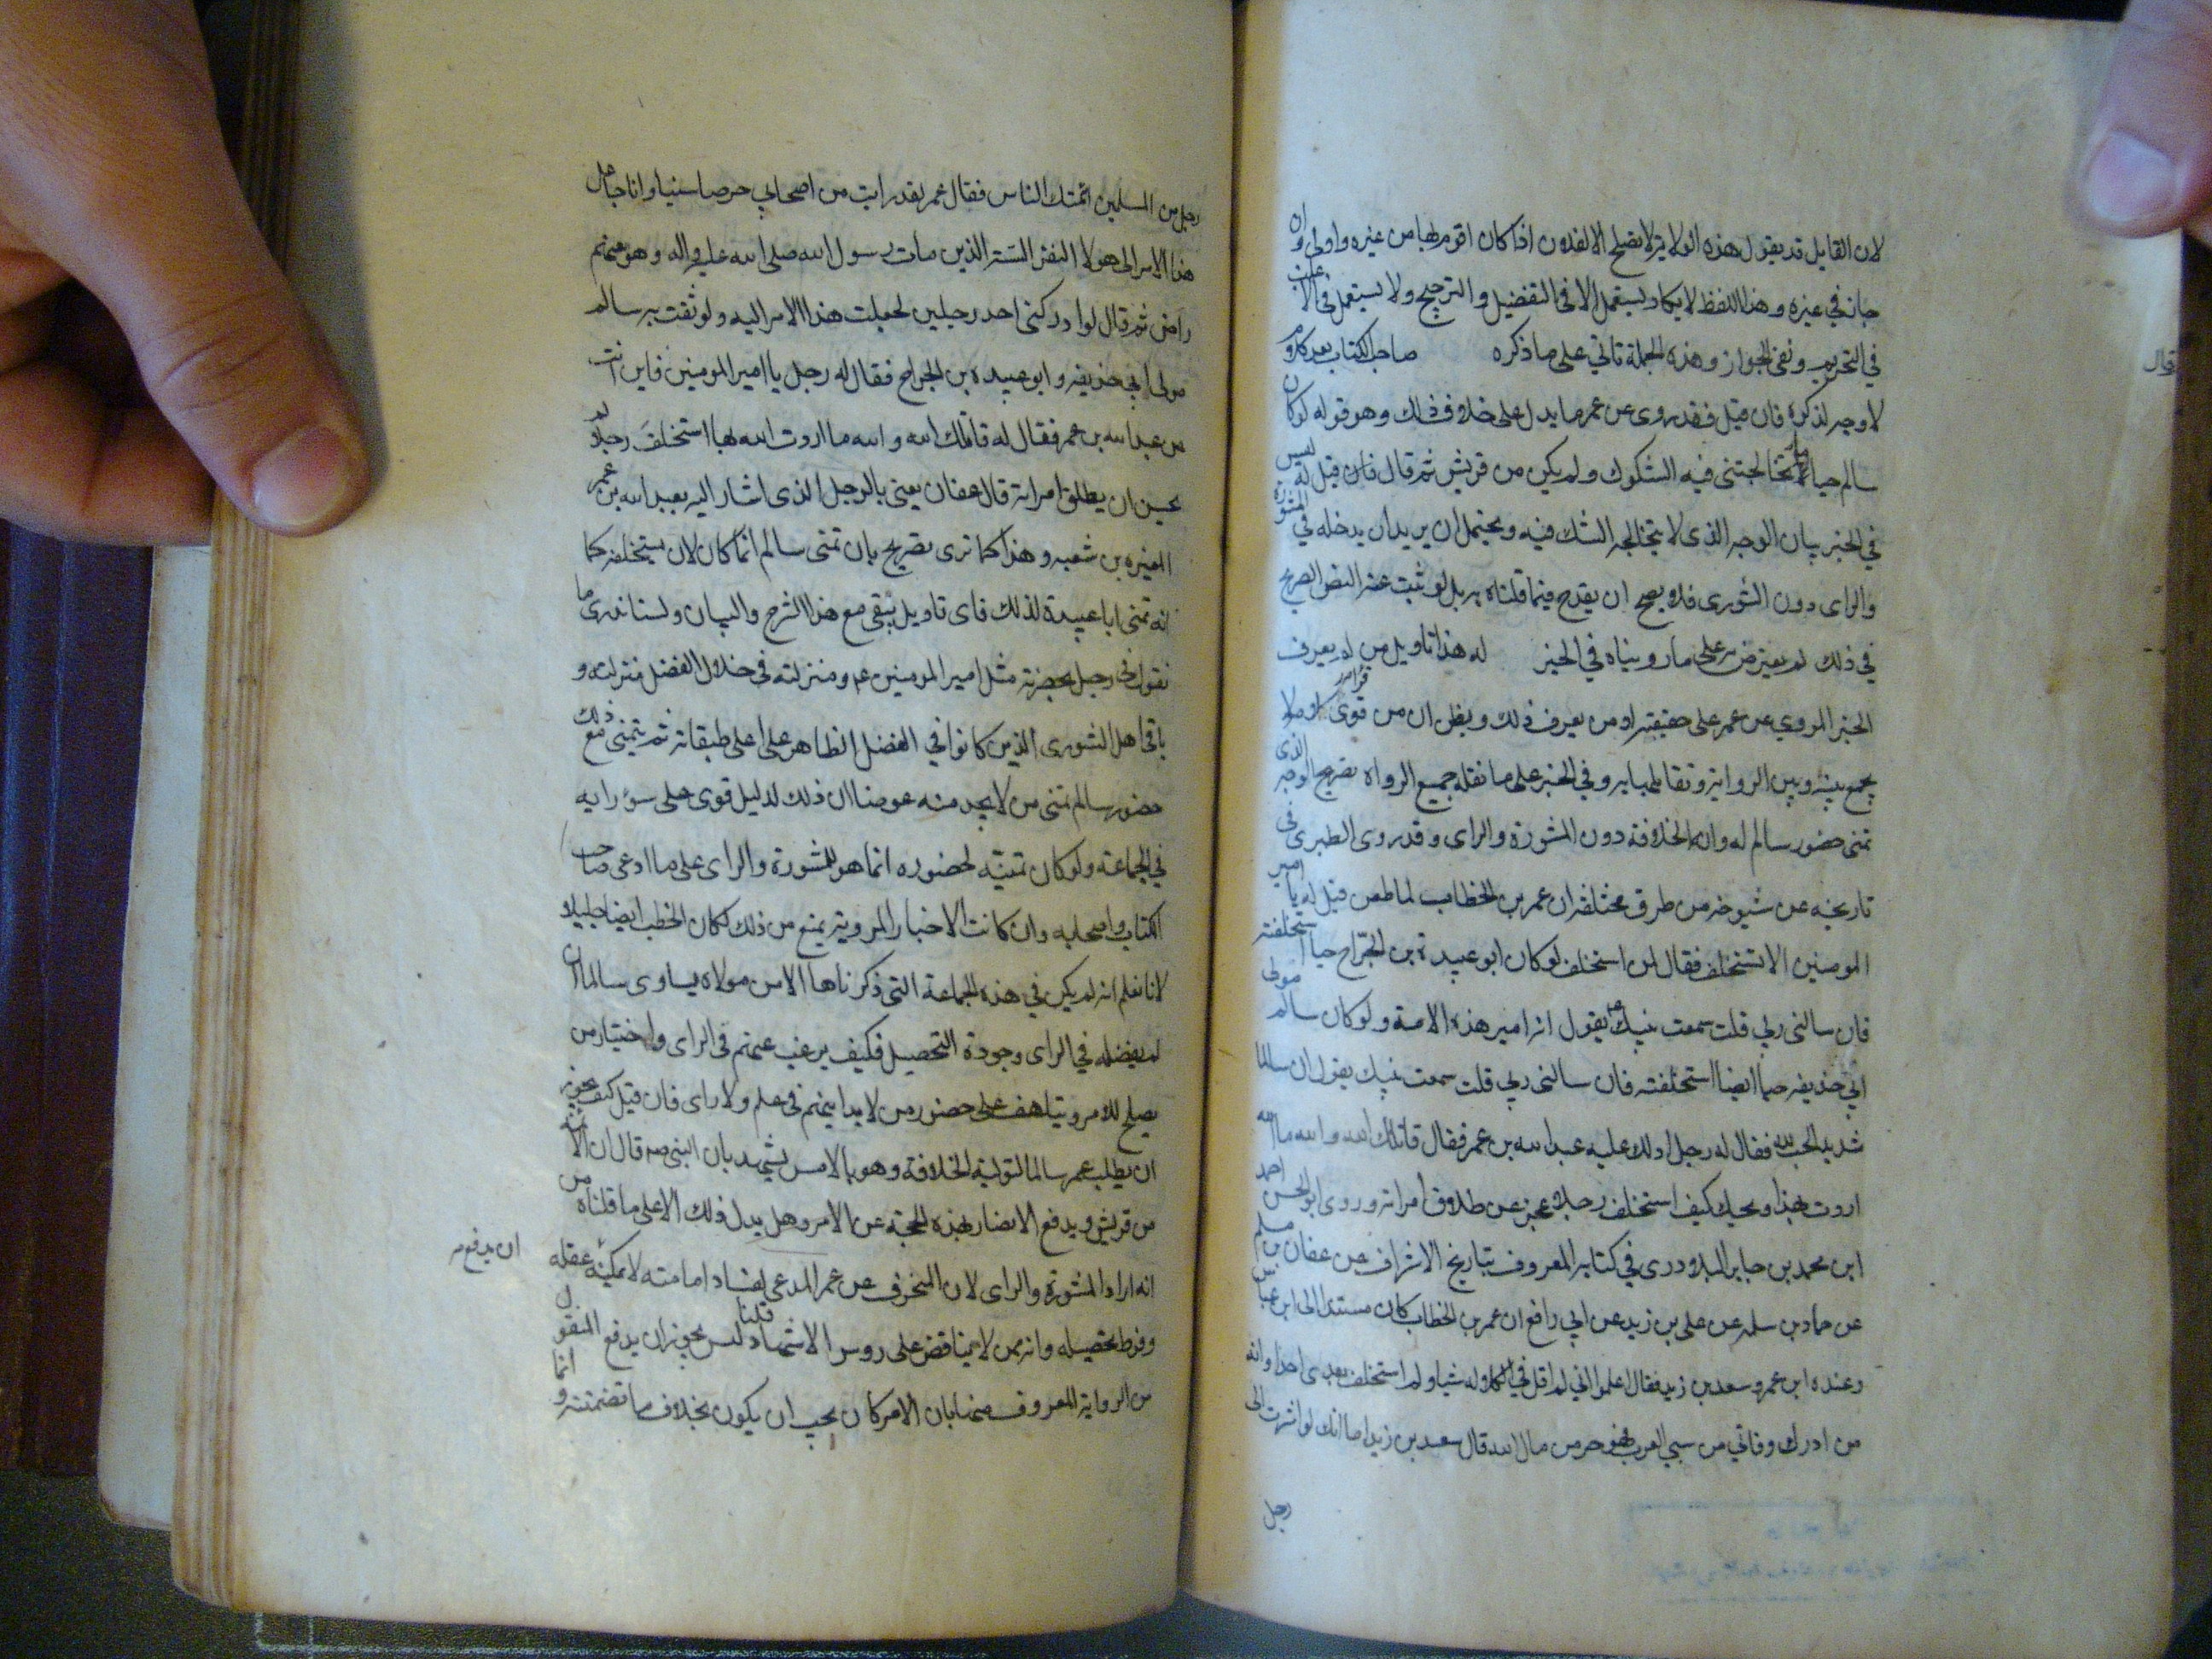 لان القايل قد يقول هذه الولاية لا تصلح الا لفلان اذا كان اقوم بها من غيره واولى وان
جاز في غيره وهذا اللفظ لا يكاد يستعمل الا في التفضيل والترجيح ولا يستعمل في الا
في التحريم ونفي الجواز وهذه الجملة تاتي على ما ذكره صاحب الكتاب بعد كلام
لا وجه لذكره فان قيل فقد روى عن عمر ما يدل على خلاف ذلك وهو قوله لو كان
سالم حيا ما تخالجتني فيه الشكوك ولم يكن من قريش ثم قال فان قيل له ليس
في الخبر بيان الوجه الذى لا يتخالجه الشك فيه ويحتمل ان يريد ان يدخله في المشورة
والراى دون الشورى فلا يصح ان يقدح فيما قلناه به بل لو ثبت عنه النص الصريح
في ذلك لم يعترض على ما رويناه في الخبر له هذا تاويل من لم يعرف
الخبر المروي عن عمر على حقيقته او من يعرف ذلك ويظن ان من قوى
يجمع بينه وبين الرواية وتقابلها به وفي الخبر على ما نقله جميع الرواه تصريح الوجه الذى
تمنى حضور سالم له وانه الخلافة دون المشورة والراى وقد روى الطبرى فى
تاريخه عن شيوخه من طرق مختلفة ان عمر بن الخطاب لما طعن قيل له يا امير
المومنين الا تستخلف فقال لمن استخلف لو كان ابو عبيدة بن الجرّاح حيا استخلفته
فان سالنى ربي قلت سمعت نبيك يقول انه امير هذه الامة ولو كان سالم مولى
ابي حذيفه حيا ايضا استخلفته فان سالنى ربي قلت سمعت نبيك يقول ان سالما
شديد الحب لله فقال له رجل ادلك عليه عبد الله بن عمر فقال قاتلك الله والله ما
اردت بهذا ويحك كيف استخلف رجلا عجز عن طلاق امراته وروى ابو الحسن احمد
ابن محمد بن جابر البلاذرى في كتابه المعروف بتاريخ الاشراف عن عفان بن مسلم
عن حماد بن سلمه عن على بن زيد عن ابي رافع ان عمر بن الخطاب كان مستندا الى ابن عباس
وعنده ابن عمر وسعد بن زيد فقال اعلموا اني لم اقل في الكلاله شيا ولم استخلف بعدى احدا وانه
من ادرك وفاتي من سبي العرب فهو حر من مال الله قال سعيد بن زيد اما انك لو اشرت الى
رجل
قال
رجل من المسلمين ائتمنك الناس فقال عمر لقد رايت من اصحابي حرصا سيئا وانا جاعل
هذا الامر الى هولا النفر الستة الذين مات رسول الله صلى الله عليه واله وهو عنهم
راض ثم قال لو ادركنى احد رجلين لجعلت هذا الامر اليه ولوثقت به سالم
مولى ابي حذيفه وابو عبيده بن الجراح فقال له رجل يا امير المومنين فاين انت
من عبد الله بن عمر فقال له قاتلك الله والله ما اردت الله بها استخلف رجلا لم
يحسن ان يطلق امراته قال عفان يعنى بالرجل الذى اشار اليه بعبد الله بن عمر
المغيره بن شعبه وهذا كما ترى تصريح بان تمنى سالم انما كان لان يستخلفه كما
انه تمنى ابا عبيدة لذلك فاى تاويل يبقى مع هذا الشرح والبيان ولسنا ندرى ما
نقول في رجل بحضرته مثل امير المومنين عم ومنزلته في خلال الفضل منزلته و
باقى اهل الشورى الذين كانوا في الفضل الظاهر على اعلى طبقاته ثم يتمنى مع ذلك
حضور سالم تمنى من لا يجد منه عوضا ان ذلك لدليل قوى على سوء رايه
في الجماعة ولو كان تمنيه لحضوره انما هو للمشورة والراى على ما ادعى صاحب
الكتاب واصحابه وان كانت الاخبار المروية يمنع من ذلك لكان الخطب ايضا جليلا
لانا نعلم انه لم يكن في هذه الجماعة التى ذكرناها الا من مولاه يساوى سالما ان
لم يفضله في الراى وجودة التحصيل فكيف يرغب عنهم فى الراى واختيار من
يصلح للامر ويتلهف على حضور من لا يدانيهم فى علم ولا راى فان قيل كيف يجوز
ان يطلب عمر سالما لتولية الخلافة وهو بالامس يشهد بان النبى صم قال ان الائمة
من قريش ويدفع الانصار بهذه الحجة عن الامر وهل يدل ذلك الا على ما قلناه من
انه اراد المشورة والراى لان المنحرف عن عمر المدعى لفساد امامته لا يمكنه عقله
ان يدفع
وفرط تحصيله وانه ممن لا يناقض على روس الاشهاد قلنا ليس يجوز ان يدفع المنقول
من الرواية المعروف ضمنا بان الامر كان يجب ان يكون بخلاف ما تضمنته وانما